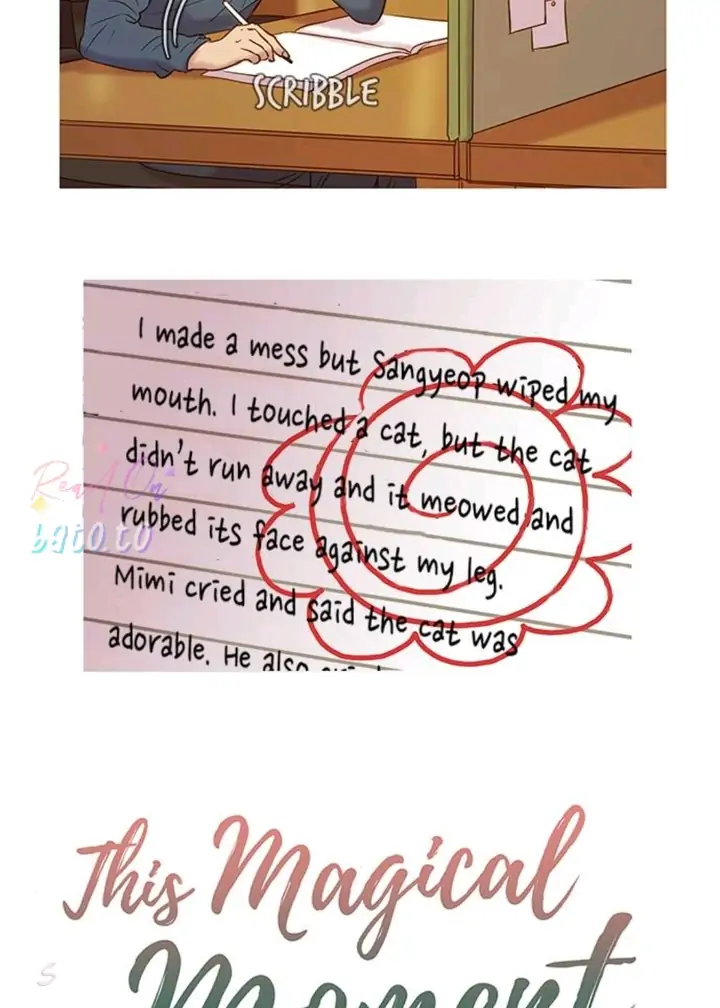 SCRIBBLE
I made a mess but Sangyeop wiped my
mouth. I touched a cat, but the cat
didn't run away and it meowed and
rubbed its face against my leg.
Mimi cried and said the cat was
adorable. He also
Read On
bato.to
This Magical
Moment
S